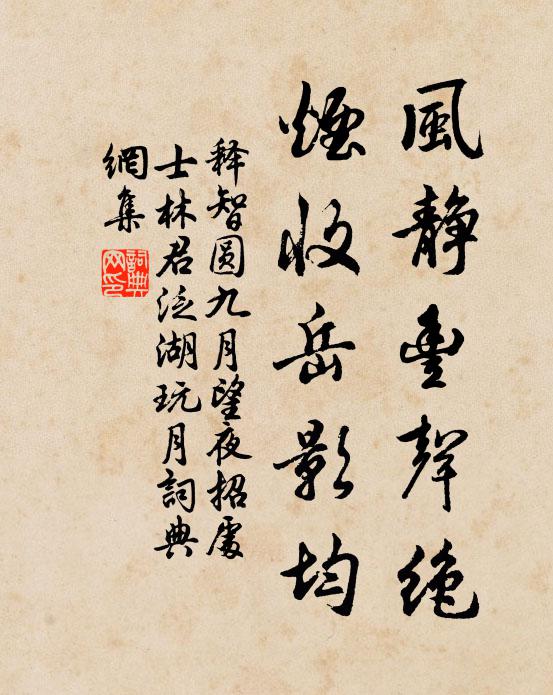 風静蛩聲絶
煙收岳影均
释智圓九月望夜招處
士林君泛湖玩月詞典
網集
詞典
网印